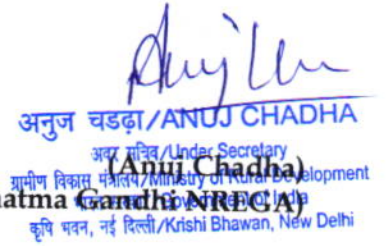 अनुज चडढ़ा/ANUJ CHADHA
अवर सचिव/Under Secretary
(Anuj Chadha)
ग्रामीण विकास मंत्रालय/Ministry of Rural Development
Government of India
Gandhi NREGA)
कृषि भवन, नई दिल्ली/Krishi Bhawan, New Delhi